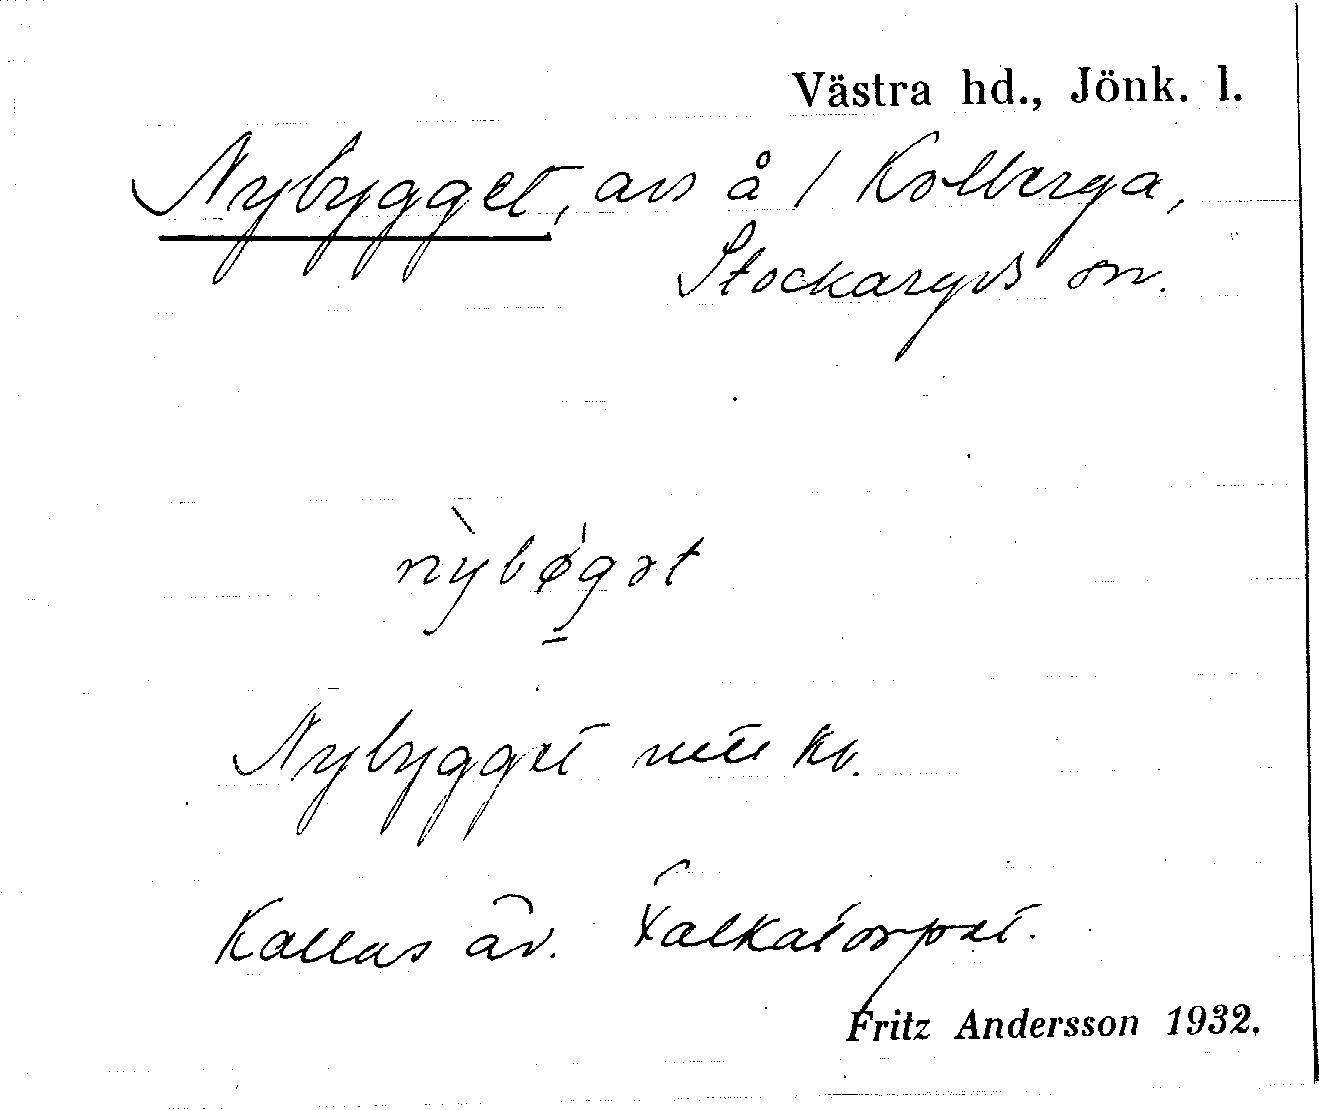 Västra hd., Jönk. l.
Nybygget, avs å / Kolberga,
Stockaryds sn.
nỳbø̀gət
Nybygget
Kallas äv. Falkatorpet.
Fritz Andersson 1932.